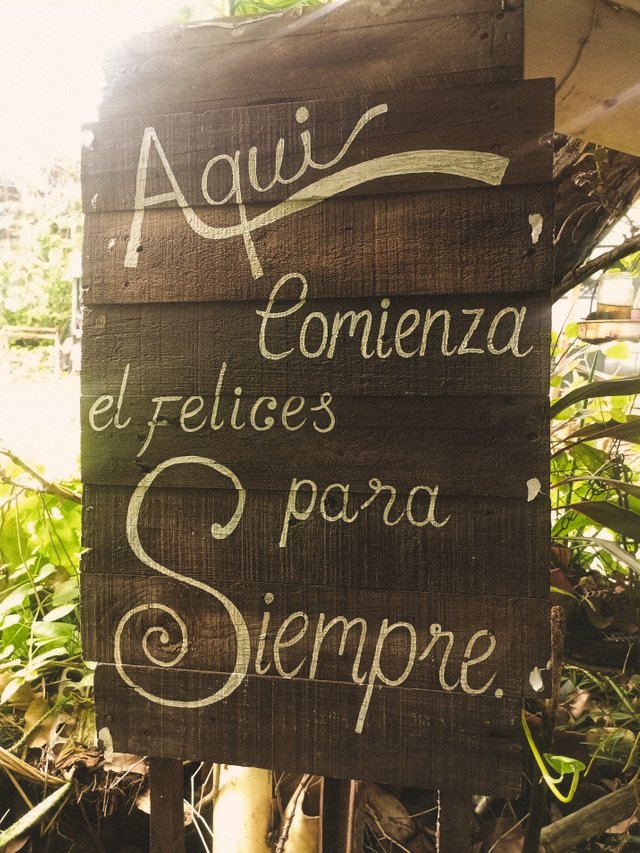 Aqui
Comienza
el Felices
para
Siempre.